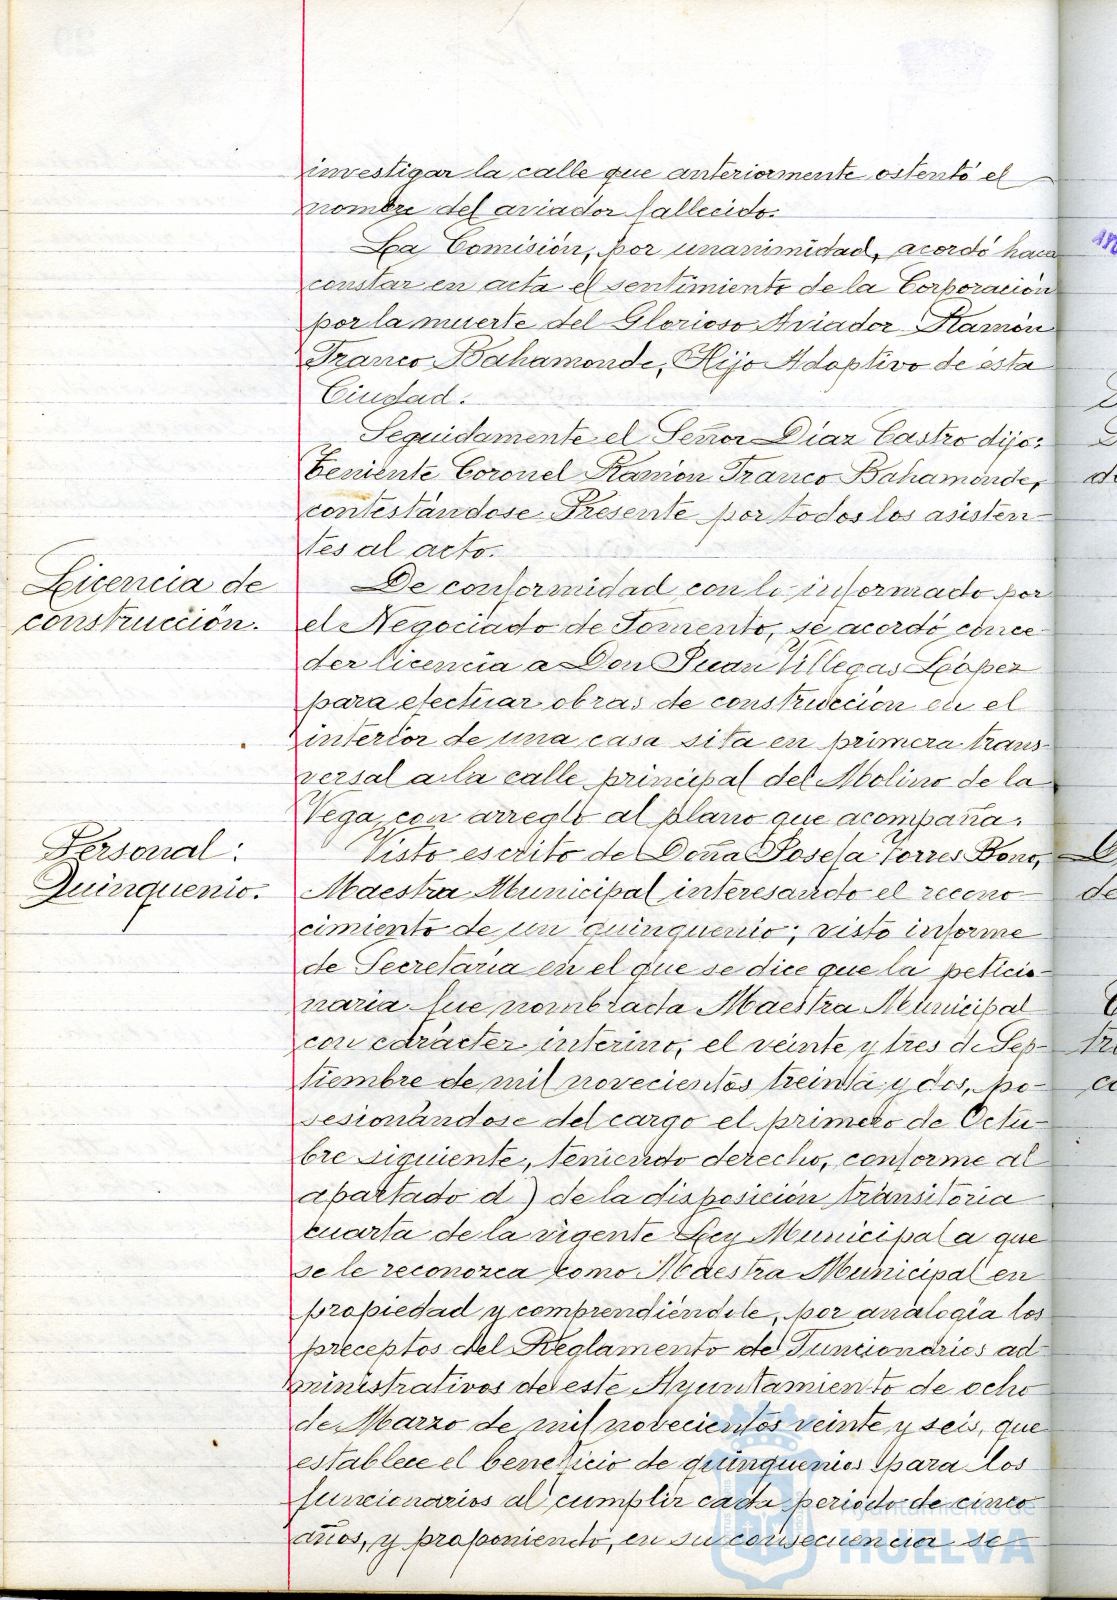 investigar la calle que anteriormente ostentó el
nombre del aviador fallecido.
La Comisión, por unanimidad, acordó hacer
constar en acta el sentimiento de la Corporación
por la muerte del Glorioso Aviador Ramón
Franco Bahamonde, Hijo Adoptivo de ésta
Ciudad.
Seguidamente el Señor Díaz Castro dijo:
Teniente Coronel Ramón Franco Bahamonde,
contestándose Presente por todos los asisten-
tes al acto.
Licencia de
construcción.
De conformidad con lo informado por
el Negociado de Fomento, se acordó conce-
der licencia a Don Juan Villegas López
para efectuar obras de construcción en el
interior de una casa sita en primera trans-
versal a la calle principal del Molino de la
Vega, con arreglo al plano que acompaña.
Personal:
Quinquenio.
Visto escrito de Doña Josefa Torres Bono,
Maestra Municipal interesando el recono-
cimiento de un quinquenio; visto informe
de Secretaría en el que se dice que la peticio-
naria fue nombrada Maestra Municipal
con carácter interino, el veinte y tres de Sep-
tiembre de mil novecientos treinta y dos, po-
sesionándose del cargo el primero de Octu-
bre siguiente, teniendo derecho, conforme al
apartado d) de la disposición transitoria
cuarta de la vigente Ley Municipal a que
se le reconozca como Maestra Municipal en
propiedad y comprendiéndole, por analogía los
preceptos del Reglamento de Funcionarios ad-
ministrativos de este Ayuntamiento de ocho
de Marzo de mil novecientos veinte y seis, que
establece el beneficio de quinquenios para los
funcionarios al cumplir cada periodo de cinco
años, y proponiendo, en su consecuencia se
Ayuntamiento de
HUELVA